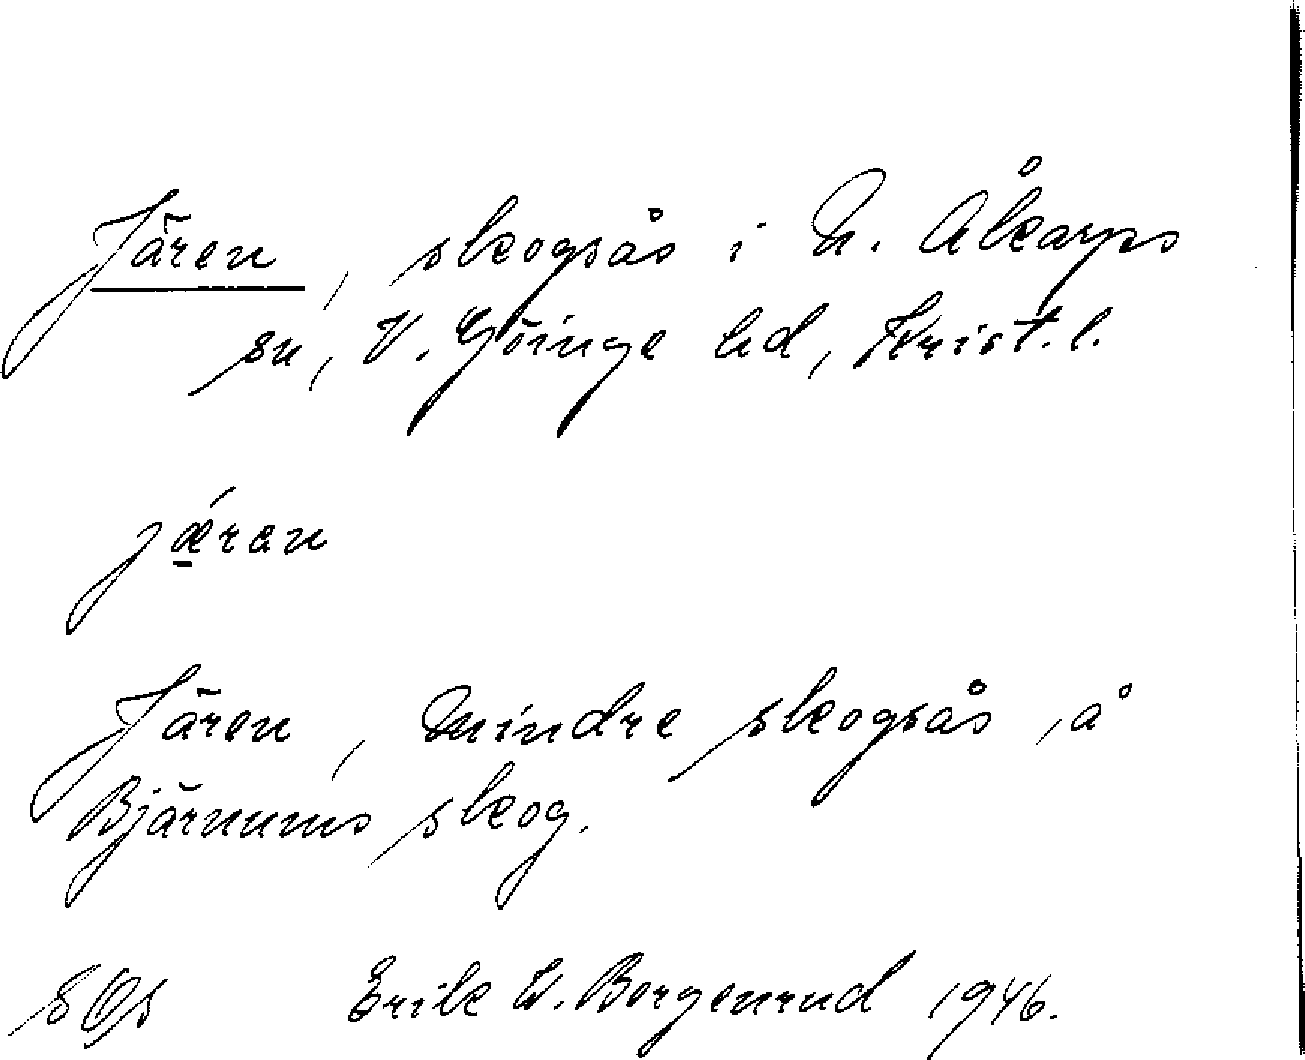 Jären, skogsås i N. Åkarps
sn, V. Göinge hd, Krist. l.
jǽ̱ran
Jären, mindre skogsås, å
Bjärnums skog.
Erik W. Borgenrud 1946.